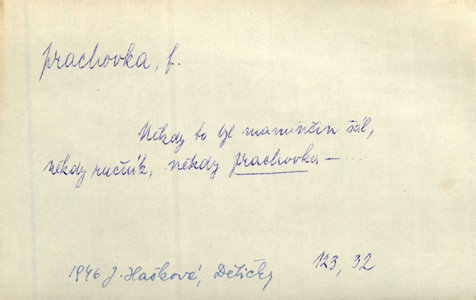 prachovka, f.
Někdy to byl maminčin šál,
někdy ručník, někdy prachovka – ...
1946 J. Hašková, Dětičky 123, 32